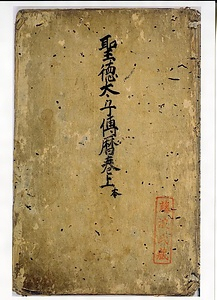 聖徳太子傳暦巻上本